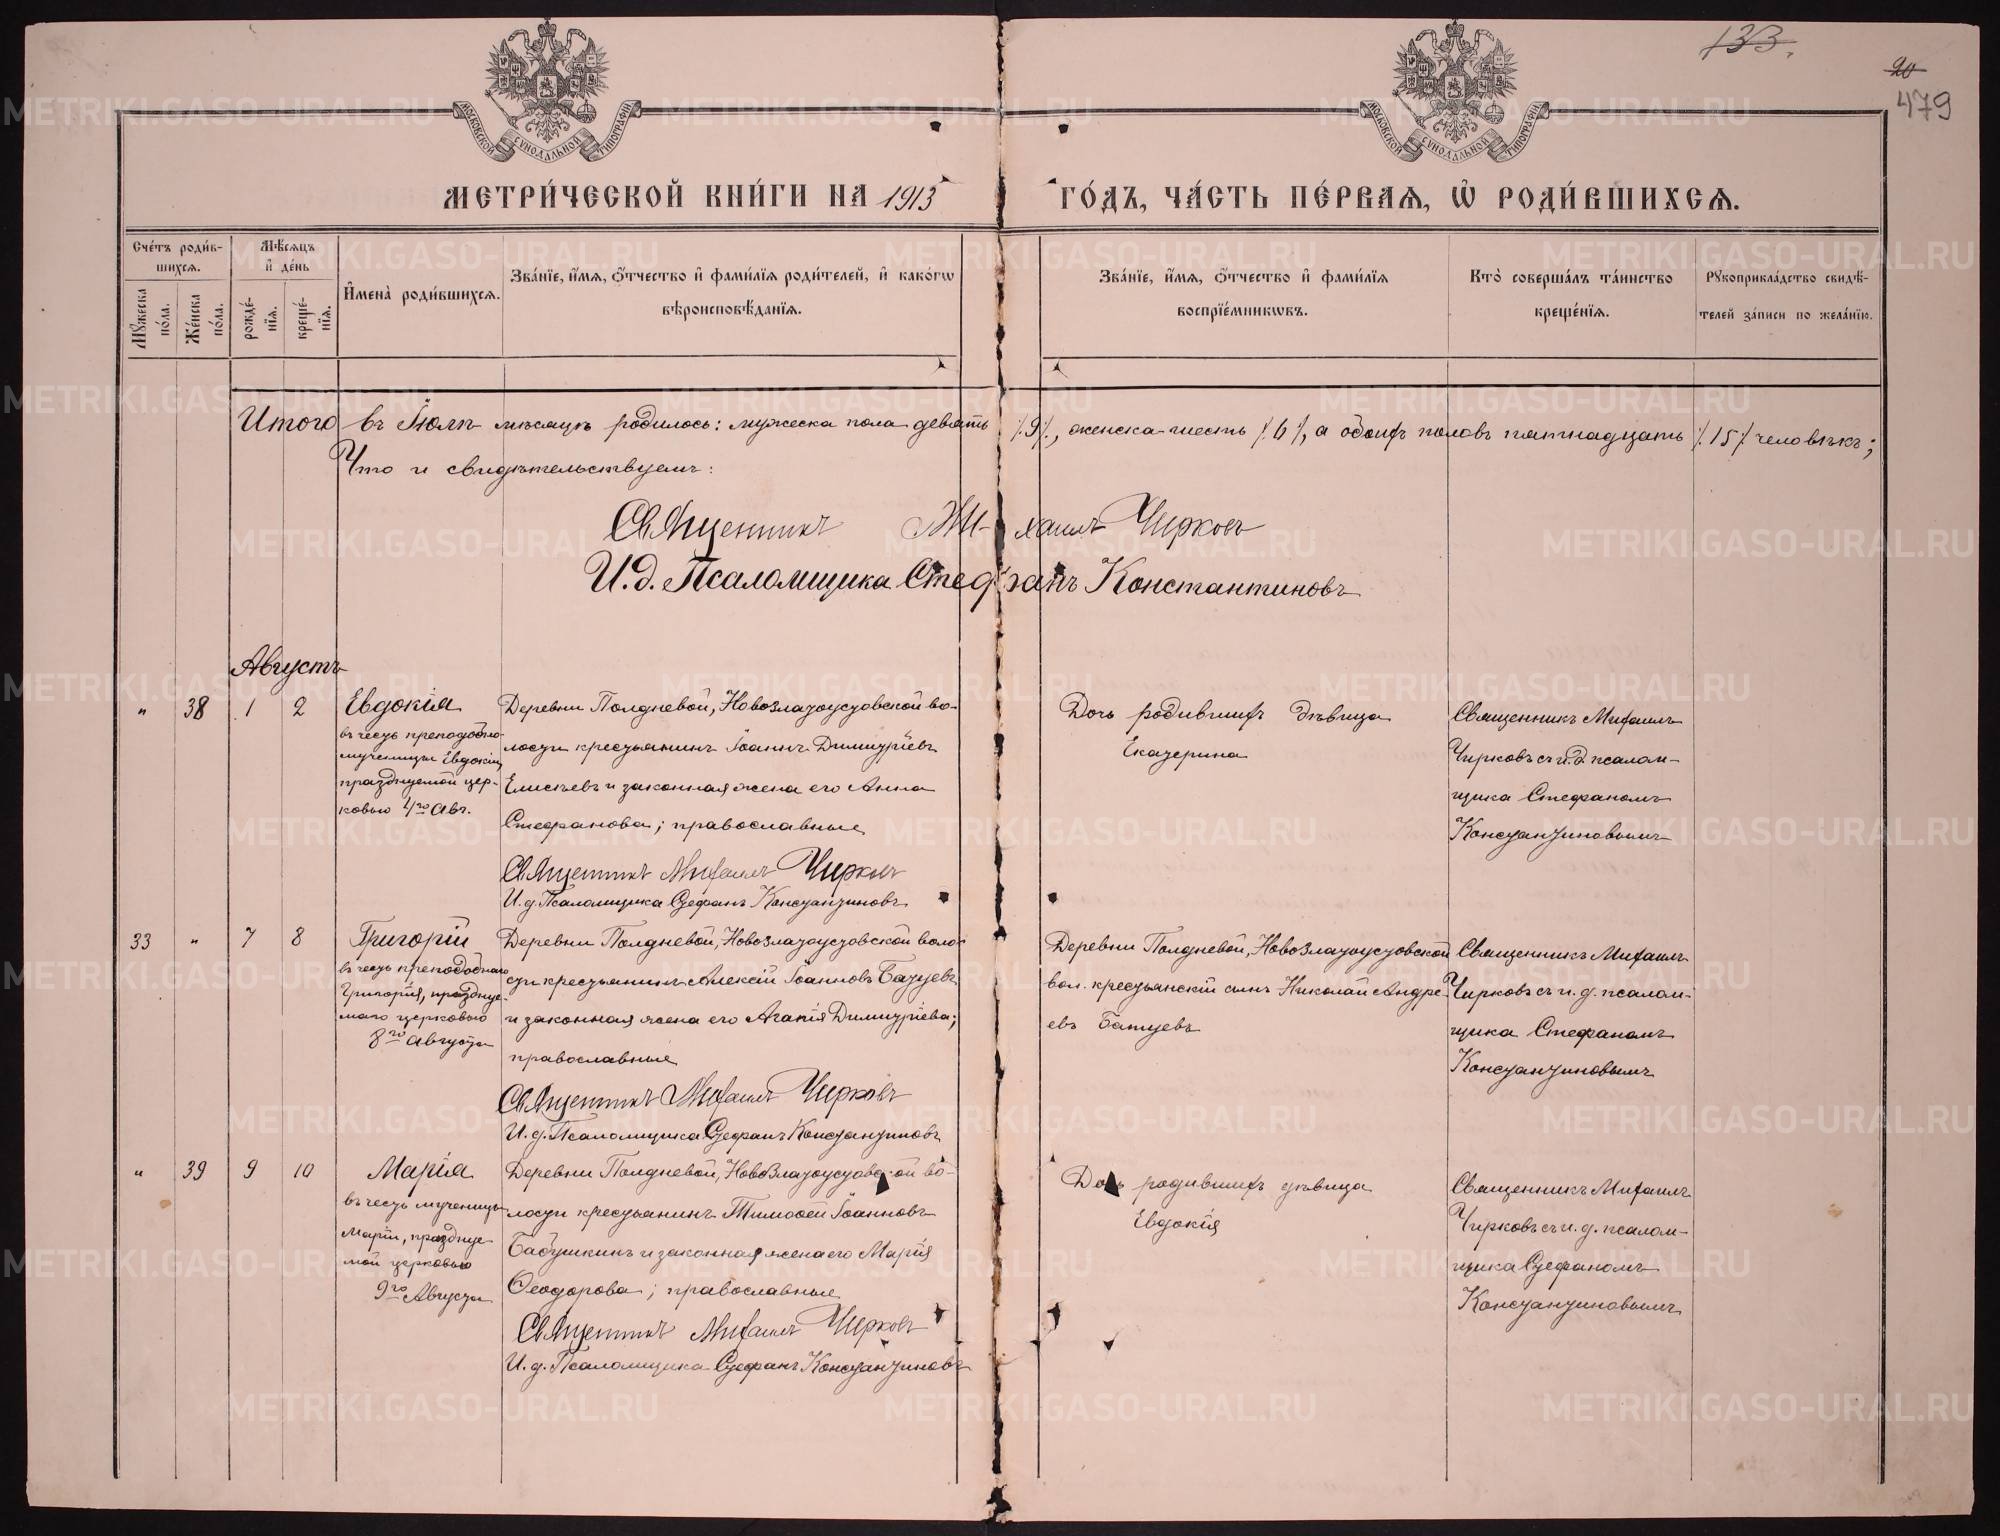 133.
20
479
МОСКОВСКОЙ СѴНОДАЛЬНОЙ ТИПОГРАФІИ
МОСКОВСКОЙ СѴНОДАЛЬНОЙ ТИПОГРАФІИ
МЕТРИ́ЧЕСКОЙ КНИ́ГИ НА 1913 ГО́ДЪ, ЧА́СТЬ ПЕ́РВАѦ, Ѡ҆ РОДИ́ВШИХСѦ.
Сче́тъ роди́в-
шихсѧ.
Мꙋ́жеска по́ла.
Же́нска по́ла.
Мѣ́сѧцъ
и҆ де́нь
рожде́-
нїѧ.
креще́-
нїѧ.
И҆мена̀ роди́вшихсѧ.
Зва́нїе, и҆́мѧ, ѻ҆́тчество и҆ фами́лїѧ роди́телей, и҆ како́гѡ
вѣроисповѣ́данїѧ.
Зва́нїе, и҆́мѧ, ѻ҆́тчество и҆ фами́лїѧ
воспрїе́мникѡвъ.
Кто̀ соверша́лъ та́инство
креще́нїѧ.
Рꙋкоприкла́дство свидѣ́-
телей за́писи по жела́нїю.
Итого въ Іюлѣ мѣсяцѣ родилось: мужеска пола девять /9/, женска шесть /6/, а обоихъ половъ пятнадцать /15/ человѣкъ;
Что и свидѣтельствуемъ:
Священникъ Михаилъ Чирковъ
И.д. Псаломщика Стефанъ Константиновъ
Августъ
„ 38 1 2
Евдокія
въ честь преподобно-
мученицы Евдокіи,
празднуемой цер-
ковью 4го Авг.
Деревни Полдневой, Новозлатоустовской во-
лости крестьянинъ Іоаннъ Димитріевъ
Елисѣевъ и законная жена его Анна
Стефанова; православные
Священникъ Михаилъ Чирковъ
И.д. Псаломщика Стефанъ Константиновъ
Дочь родившихъ дѣвица
Екатерина
Священникъ Михаилъ
Чирковъ съ и.д. псалом-
щика Стефаномъ
Константиновымъ
33 „ 7 8
Григорій
въ честь преподобнаго
Григорія, праздне-
маго церковью
8го августа
Деревни Полдневой, Новозлатоустовской воло-
сти крестьянинъ Алексій Іоанновъ Батуевъ
и законная жена его Агапія Димитріева;
православные
Священникъ Михаилъ Чирковъ
И.д. Псаломщика Стефанъ Константиновъ
Деревни Полдневой, Новозлатоустовской
вол. крестьянскій сынъ Николай Андре-
евъ Батуевъ
Священникъ Михаилъ
Чирковъ съ и.д. псалом-
щика Стефаномъ
Константиновымъ
„ 39 9 10
Марія
въ честь мученицы
Маріи, праздуе-
мой церковью
9го Августа
Деревни Полдневой, Новозлатоустовской во-
лости крестьянинъ Тимофей Іоанновъ
Бабушкинъ и законная жена его Марія
Феодорова; православные
Священникъ Михаилъ Чирковъ
И.д. Псаломщика Стефанъ Константиновъ
Дочь родившихъ дѣвица
Евдокія
Священникъ Михаилъ
Чирковъ съ и.д. псалом-
щика Стефаномъ
Константиновымъ
METRIKI.GASO-URAL.RU